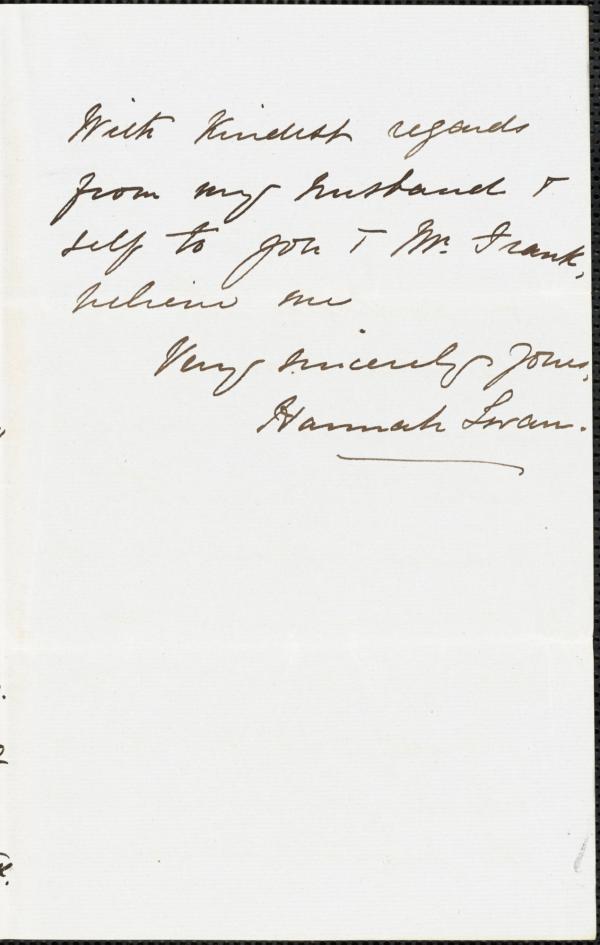 With kindest regards
from my husband &
self to you & Mr. Frank,
believe me
Very sincerely yours,
Hannah Swan.